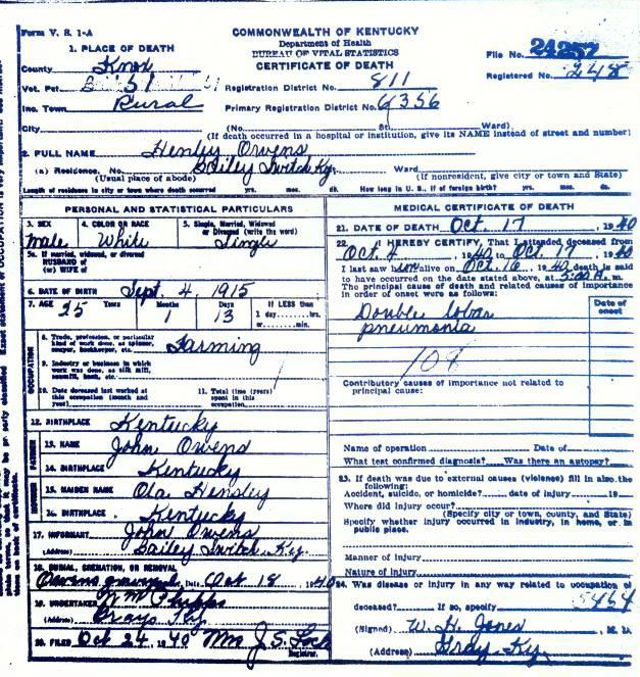 Form V. S. 1-A
COMMONWEALTH OF KENTUCKY
Department of Health
BUREAU OF VITAL STATISTICS
CERTIFICATE OF DEATH
File No. 24257
Registered No. 248
1. PLACE OF DEATH
County Knox
Vot. Pct.
Registration District No. 811
Inc. Town Rural
Primary Registration District No. 6356
City (No. St. Ward)
(If death occurred in a hospital or institution, give its NAME instead of street and number)
2. FULL NAME Henley Owens
(a) Residence. No. Bailey Switch Ky. Ward
(Usual place of abode) (If nonresident, give city or town and State)
Length of residence in city or town where death occurred yrs. mos. ds. How long in U. S., if of foreign birth? yrs. mos. ds.
PERSONAL AND STATISTICAL PARTICULARS
3. SEX Male
4. COLOR OR RACE White
5. Single, Married, Widowed or Divorced (write the word) Single
5a. If married, widowed, or divorced
HUSBAND of
(or) WIFE of
6. DATE OF BIRTH Sept. 4, 1915
7. AGE 25 Years 1 Months 13 Days
If LESS than
1 day......hrs.
or......min.
OCCUPATION
8. Trade, profession, or particular kind of work done, as spinner, sawyer, bookkeeper, etc. Farming
9. Industry or business in which work was done, as silk mill, sawmill, bank, etc.
10. Date deceased last worked at this occupation (month and year)
11. Total time (years) spent in this occupation
12. BIRTHPLACE Kentucky
FATHER
13. NAME John Owens
14. BIRTHPLACE Kentucky
MOTHER
15. MAIDEN NAME Ola Hensley
16. BIRTHPLACE Kentucky
17. INFORMANT John Owens
(Address) Bailey Switch Ky.
18. BURIAL, CREMATION, OR REMOVAL
Owens Date Oct 18, 1940
19. UNDERTAKER Wm Phipps
(Address) Grays Ky
20. FILED Oct 24, 1940 Mrs J. S. Lock
Registrar.
MEDICAL CERTIFICATE OF DEATH
21. DATE OF DEATH Oct. 17, 1940
22. I HEREBY CERTIFY, That I attended deceased from
Oct 4, 1940 to Oct 17, 1940
I last saw him alive on Oct. 16, 1940 death is said
to have occurred on the date stated above, at 5:00 A. m.
The principal cause of death and related causes of importance
in order of onset were as follows:
Date of onset
Double lobar
pneumonia
108
Contributory causes of importance not related to
principal cause:
Name of operation Date of
What test confirmed diagnosis? Was there an autopsy?
23. If death was due to external causes (violence) fill in also the
following:
Accident, suicide, or homicide? date of injury 19
Where did injury occur?
(Specify city or town, county, and State)
Specify whether injury occurred in industry, in home, or in
public place.
Manner of injury
Nature of injury
24. Was disease or injury in any way related to occupation of
deceased? If so, specify 5464
(Signed) W. H. Jones M. D.
(Address) Gray, Ky.